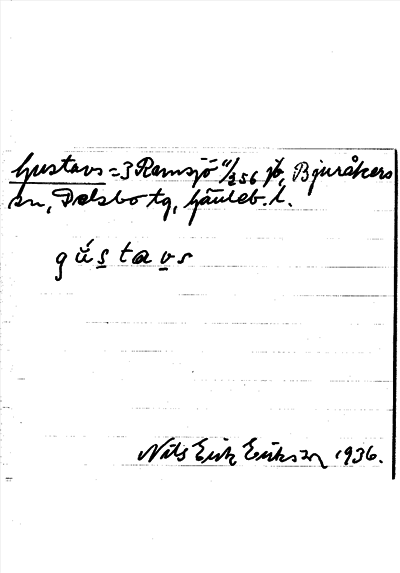 Gustavs = 3 Ramsjö 11/256 jb, Bjuråkers
sn, Delsbo tg, Gävleb. l.
gústavs
Nils Erik Eriksson 1936.